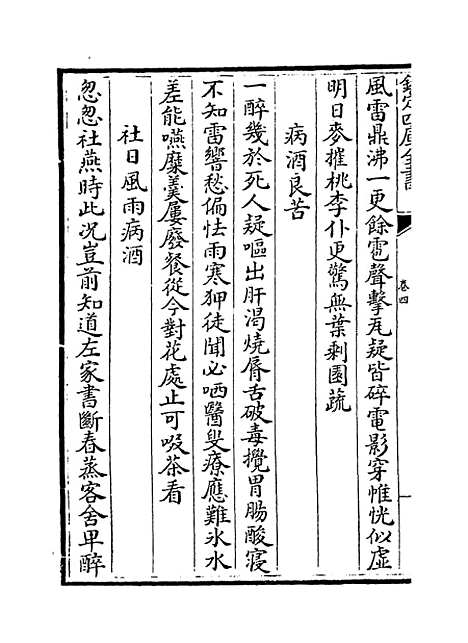 欽定四庫全書
卷四
風雷鼎沸一更餘雹聲擊瓦疑皆碎電影穿帷恍似虛
明日麥摧桃李仆更驚無葉剩園蔬
病酒良苦
一醉幾於死人疑嘔出肝渴燒脣舌破毒攪胃腸酸寢
不知雷響愁偏怯雨寒狎徒聞必哂醫叟療應難氷水
差能嚥糜羮屢廢餐從今對花處止可啜茶看
社日風雨病酒
忽忽社燕時此况豈前知道左家書斷春蒸客舍卑醉